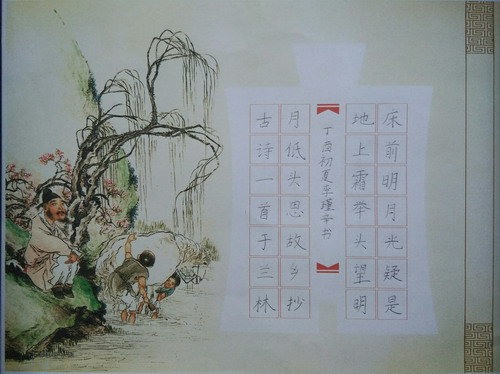 床前明月光疑是
地上霜举头望明
丁酉初夏李瑾辛书
月低头思故乡抄
古诗一首于兰林